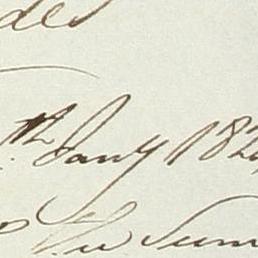 des
th Jany 182
the sum